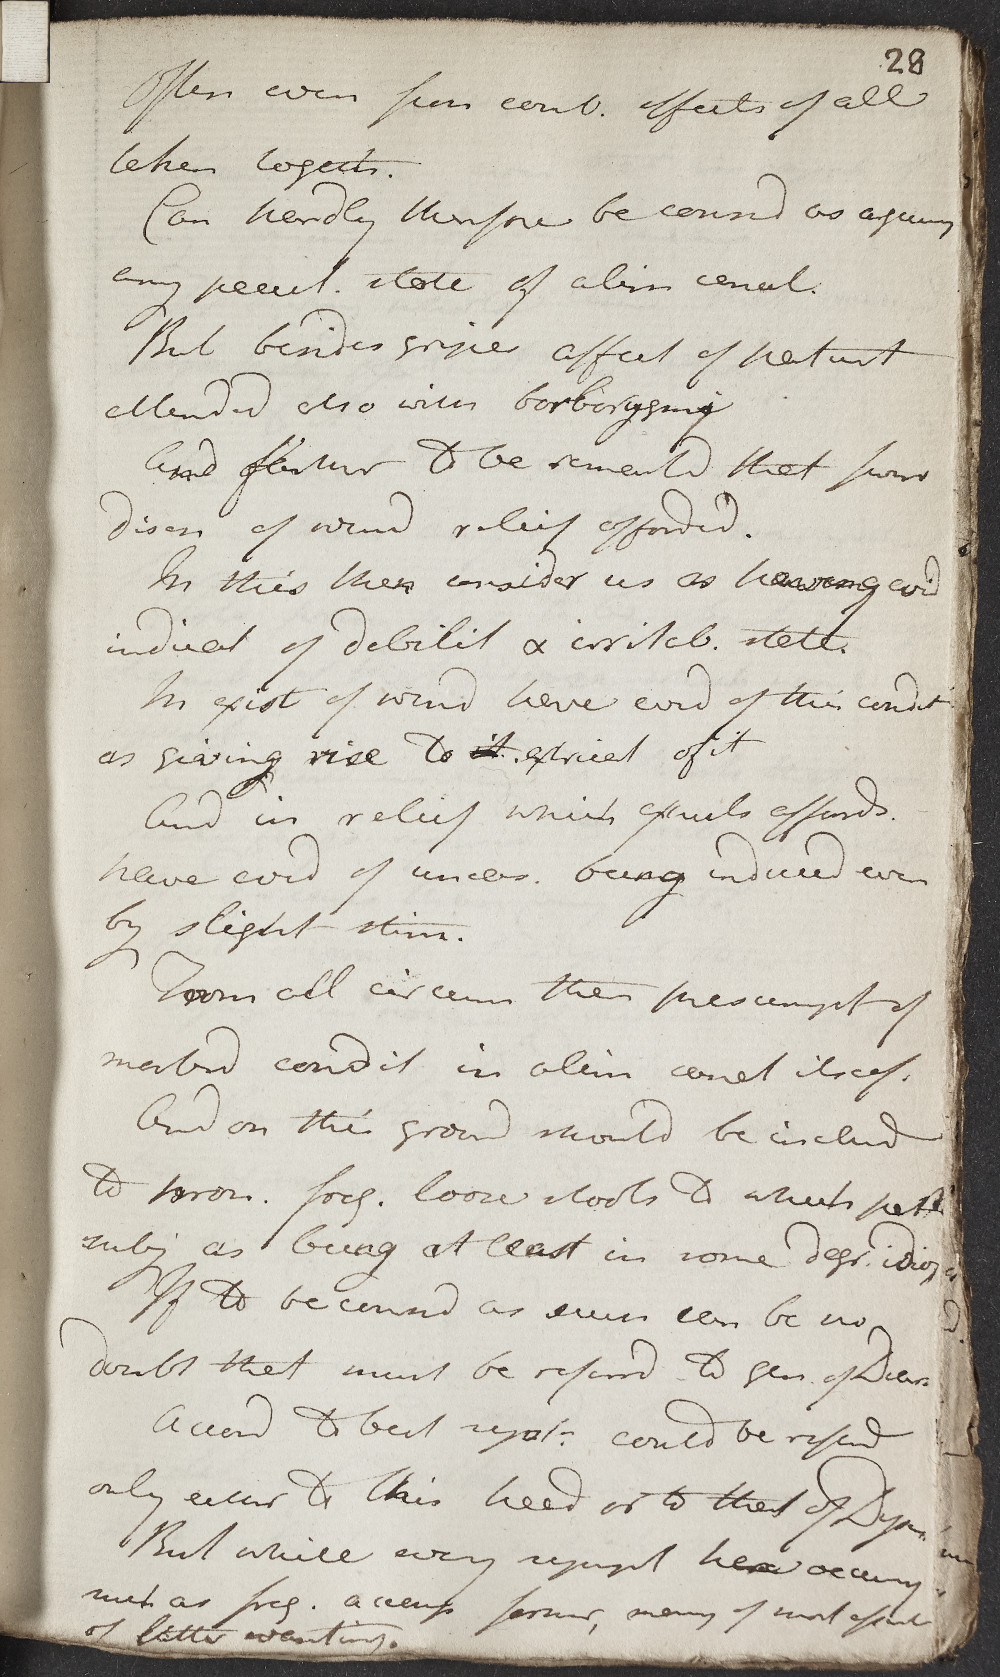 28
Often even from comb. effects of all
taken togeth.
Can hardly therefore be consd as arguing
any pecul. state of alim canal.
But besides gripes affect of patient
attended also with borborygmy
And farther to be rememb'd that from
disch of wind relief afforded.
In this then consider us as having evid
indicat of debilit & irritab. state.
In exist of wind have evid of this condit
as giving rise to extricat of it
And in relief which expuls affords.
have evid of uneas. being induced even
by slight stim.
From all circum then presumpt of
morbid condit in alim canal itself.
And on this ground should be inclined
to pron. freq. loose stools to which pat
subj as being at least in some degr. idiop
If to be consd as such can be no
doubt that must be referred to gen. of Diarr
Accord to best sympt. could be referd
only either to this head or to that of Dysen
But while every sympt here occurring
such as freq. accomp former, many of most essent
of latter wanting.